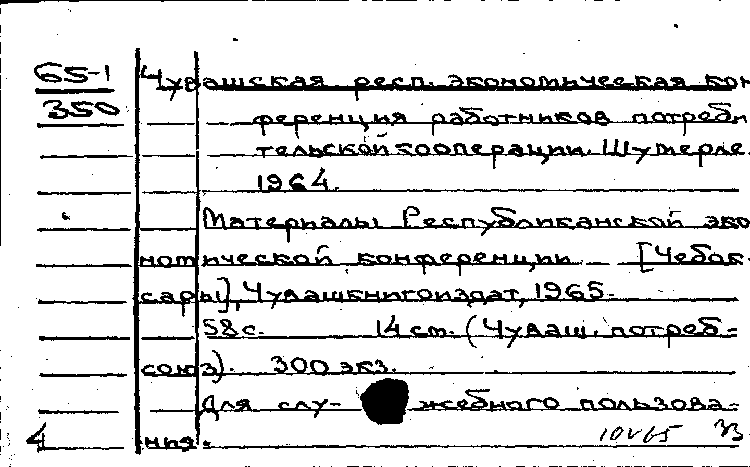 65-1 Чувашская респ. экономическая кон
350 ференция работников потреби
тельской кооперации. Шумерле.
1964.
Материалы Республиканской эко
номической конференции. [Чебок-
сары], Чувашкнигоиздат, 1965.
58 с. 14 см. (Чуваш. потреб-
союз). 300 экз.
Для слу- жебного пользова-
4 ния.